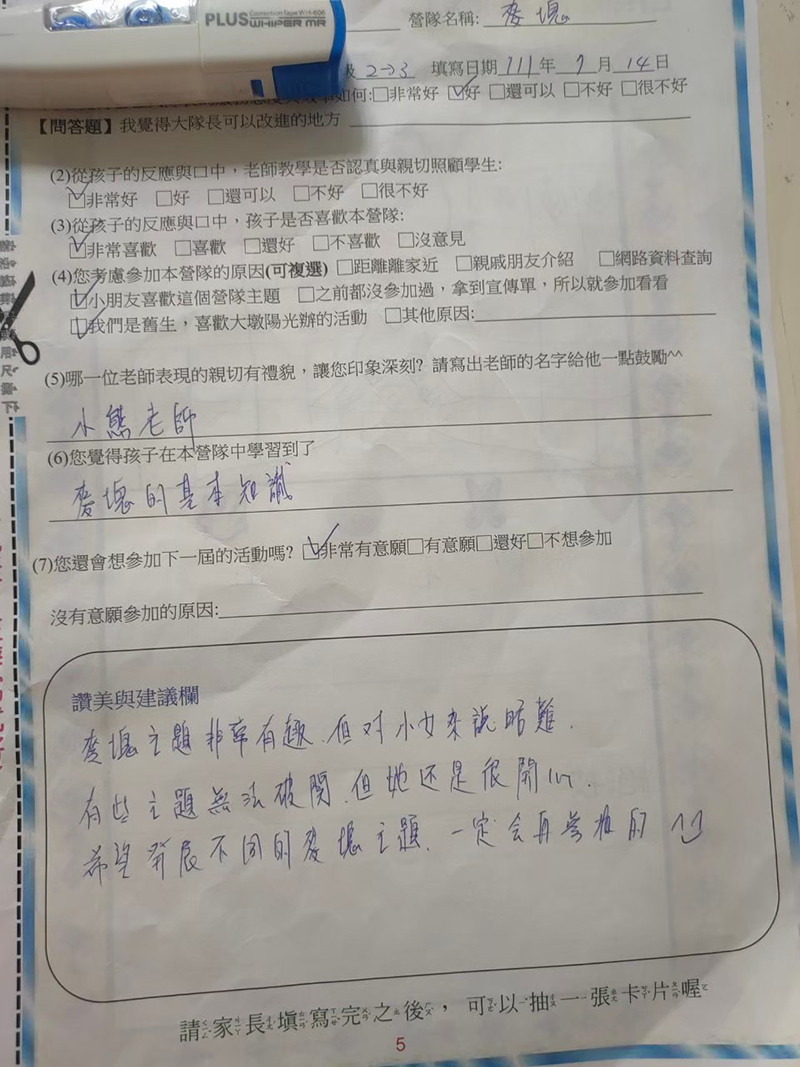 PLUS Correction Tape WH-606
WHIPER MR
營隊名稱: 麥塊
級 2→3 填寫日期 111 年 7 月 14 日
如何:□非常好 ☑好 □還可以 □不好 □很不好
【問答題】我覺得大隊長可以改進的地方
(2)從孩子的反應與口中，老師教學是否認真與親切照顧學生:
☑非常好 □好 □還可以 □不好 □很不好
(3)從孩子的反應與口中，孩子是否喜歡本營隊:
☑非常喜歡 □喜歡 □還好 □不喜歡 □沒意見
(4)您考慮參加本營隊的原因(可複選) □距離離家近 □親戚朋友介紹 □網路資料查詢
☑小朋友喜歡這個營隊主題 □之前都沒參加過，拿到宣傳單，所以就參加看看
☑我們是舊生，喜歡大墩陽光辦的活動 □其他原因:
(5)哪一位老師表現的親切有禮貌，讓您印象深刻? 請寫出老師的名字給他一點鼓勵^^
小熊老師
(6)您覺得孩子在本營隊中學習到了
麥塊的基本知識
(7)您還會想參加下一屆的活動嗎? ☑非常有意願□有意願□還好□不想參加
沒有意願參加的原因:
讚美與建議欄
麥塊主題非常有趣.但对小女來說略難.
有些主題無法破関.但她还是很開心.
希望發展不同的麥塊主題.一定会再參加的 ^^
請家長填寫完之後，可以抽一張卡片喔
5